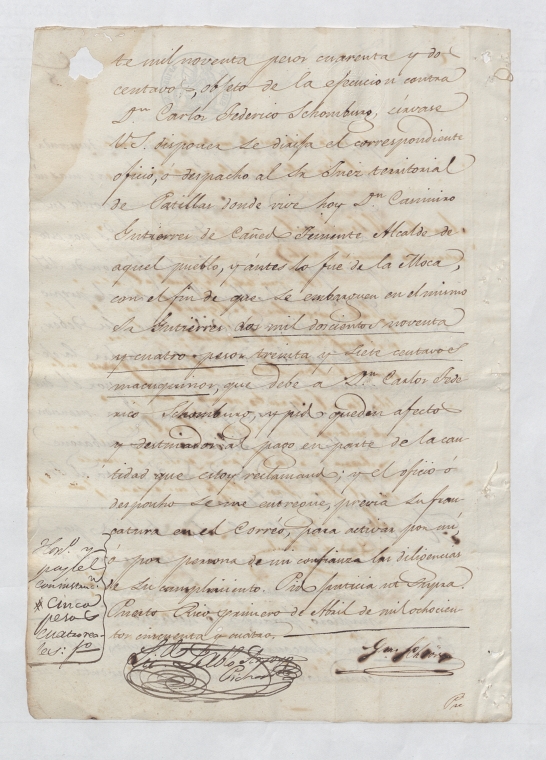 te mil noventa pesos cuarenta y dos
centavos, objeto de la ejecucion contra
Dn Carlos Federico Schomburg, sirvase
V.S. disponer se dirija el correspondiente
oficio, ó despacho al Sr Juez territorial
de Patillas donde vive hoy Dn Casimiro
Gutierrez de Cañed Teniente Alcalde de
aquel pueblo, y ántes lo fué de la Moca,
con el fin de que se embarguen en el mismo
Sr Gutierrez dos mil doscientos noventa
y cuatro pesos treinta y siete centavos
macuquinos, que debe á Dn Carlos Fede
rico Schomburg, y pido queden afectos
y destinados al pago en parte de la can
tidad que estoy reclamando; y el oficio ó
despacho se me entregue, previa su fran
catura en el Correo, para activar por mi
ó por persona de mi confianza las diligencias
de su cumplimiento. Pido justicia ut supra
Puerto Rico primero de Abril de mil ochocien
tos cincuenta y cuatro.
Hons. y
papel
cinco
pesos
cuatro rea
les: